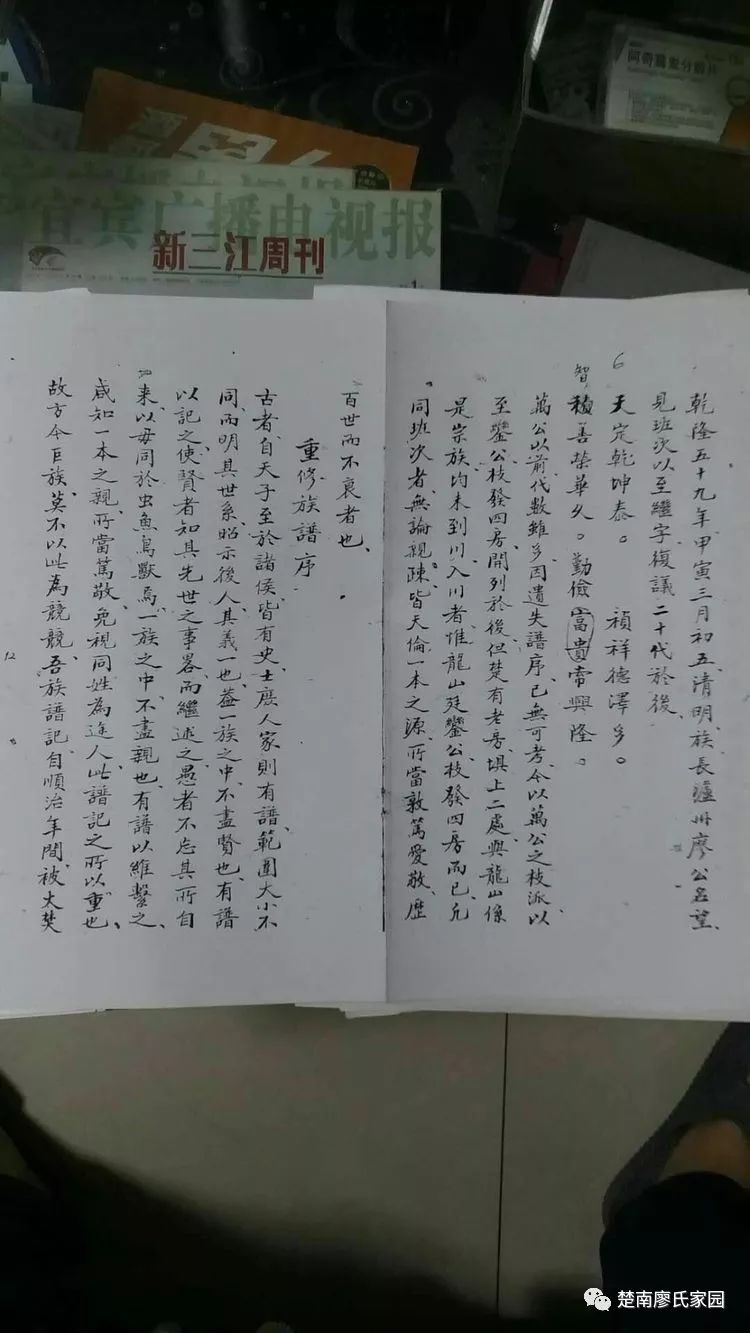 阿奇霉素分散片
宜宾广播电视报
新三江周刊
乾隆五十九年甲寅三月初五清明、族長瀘州廖公名望、
見班次以至繼字復議二十代於後、
6
天定乾坤泰。 禎祥德澤多。
智
積善榮華久。勤儉富貴帝興隆。
萬公以前代數雖多因遺失譜序、已無可考、今以萬公之枝派以
至鑾公枝發四房、開列於後、但楚有老房、埧上二處、與龍山係
是宗族均未到川、入川者惟龍山廷鑾公枝發四房而已、凡
同班次者、無論親疎、皆天倫一本之源、所當敦篤愛敬、歷
百世而不衰者也、
重修族譜序
古者、自天子至於諸侯、皆有史、士庶人家、則有譜、範圍大小不
同、而明其世系、昭示後人、其義一也、蓋一族之中、不盡賢也、有譜
以記之、使賢者知其先世之事畧、而繼述之、愚者不忘其所自
来、以毋同於虫魚鳥獸焉、一族之中、不盡親也、有譜以維繫之、
咸知一本之親、所當篤敬、免視同姓為途人、此譜記之所以重也、
故方今巨族、莫不以此為競競、吾族譜記、自順治年間、被大焚
12
楚南廖氏家园